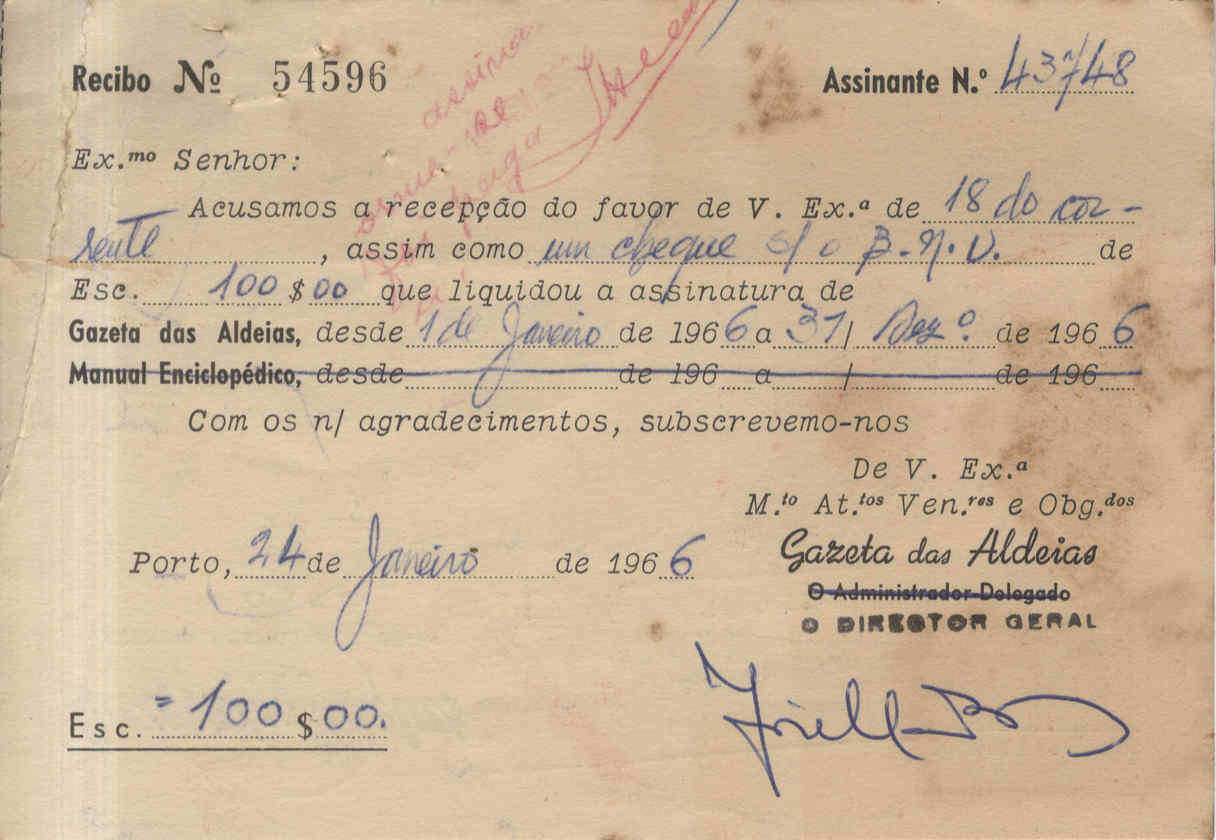 Recibo Nº 54596 Assinante N.º 43748
Ex.mo Senhor:
Acusamos a recepção do favor de V. Ex.ª de 18 do cor-
rente, assim como um cheque s/ o B.N.U. de
Esc. 100$00 que liquidou a assinatura de
Gazeta das Aldeias, desde 1 de Janeiro de 1966 a 31/ Dez.º de 1966
Manual Enciclopédico, desde de 196 a / de 196
Com os n/ agradecimentos, subscrevemo-nos
De V. Ex.ª
M.to At.tos Ven.res e Obg.dos
Porto, 24 de Janeiro de 1966
Gazeta das Aldeias
O Administrador-Delegado
O DIRECTOR GERAL
Esc. =100$00.